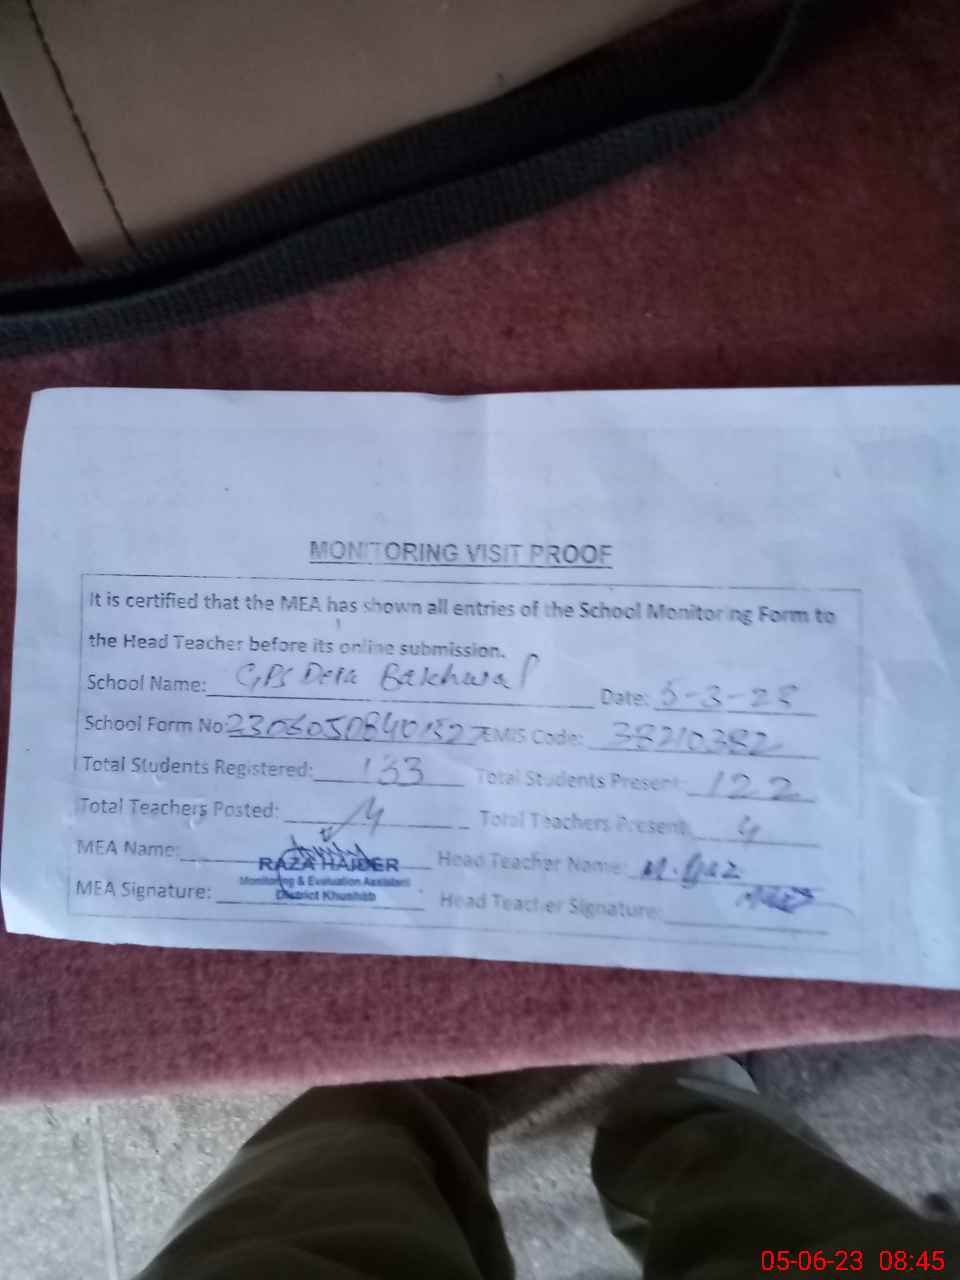 MONITORING VISIT PROOF
It is certified that the MEA has shown all entries of the School Monitoring Form to
the Head Teacher before its online submission.
School Name: GPS Dera Bakhwal Date: 5-3-23
School Form No: EMIS Code: 38210382
Total Students Registered: 133 Total Students Present: 122
Total Teachers Posted: 4 Total Teachers Present: 4
MEA Name: RAZA HAIDER Head Teacher Name: M.
Monitoring & Evaluation Assistant
MEA Signature: District Khushab Head Teacher Signature:
05-06-23 08:45